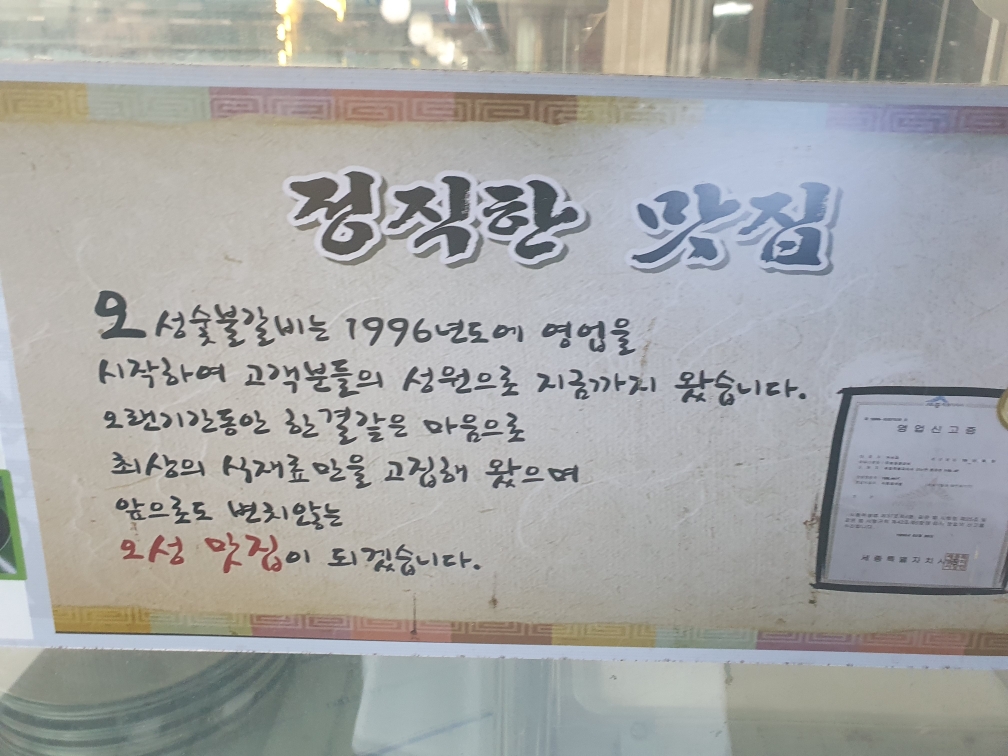 정직한 맛집
오성숯불갈비는 1996년도에 영업을
시작하여 고객분들의 성원으로 지금까지 왔습니다.
오랜기간동안 한결같은 마음으로
최상의 식재료만을 고집해 왔으며
앞으로도 변치않는
오성 맛집이 되겠습니다.
영업신고증
세종특별자치시